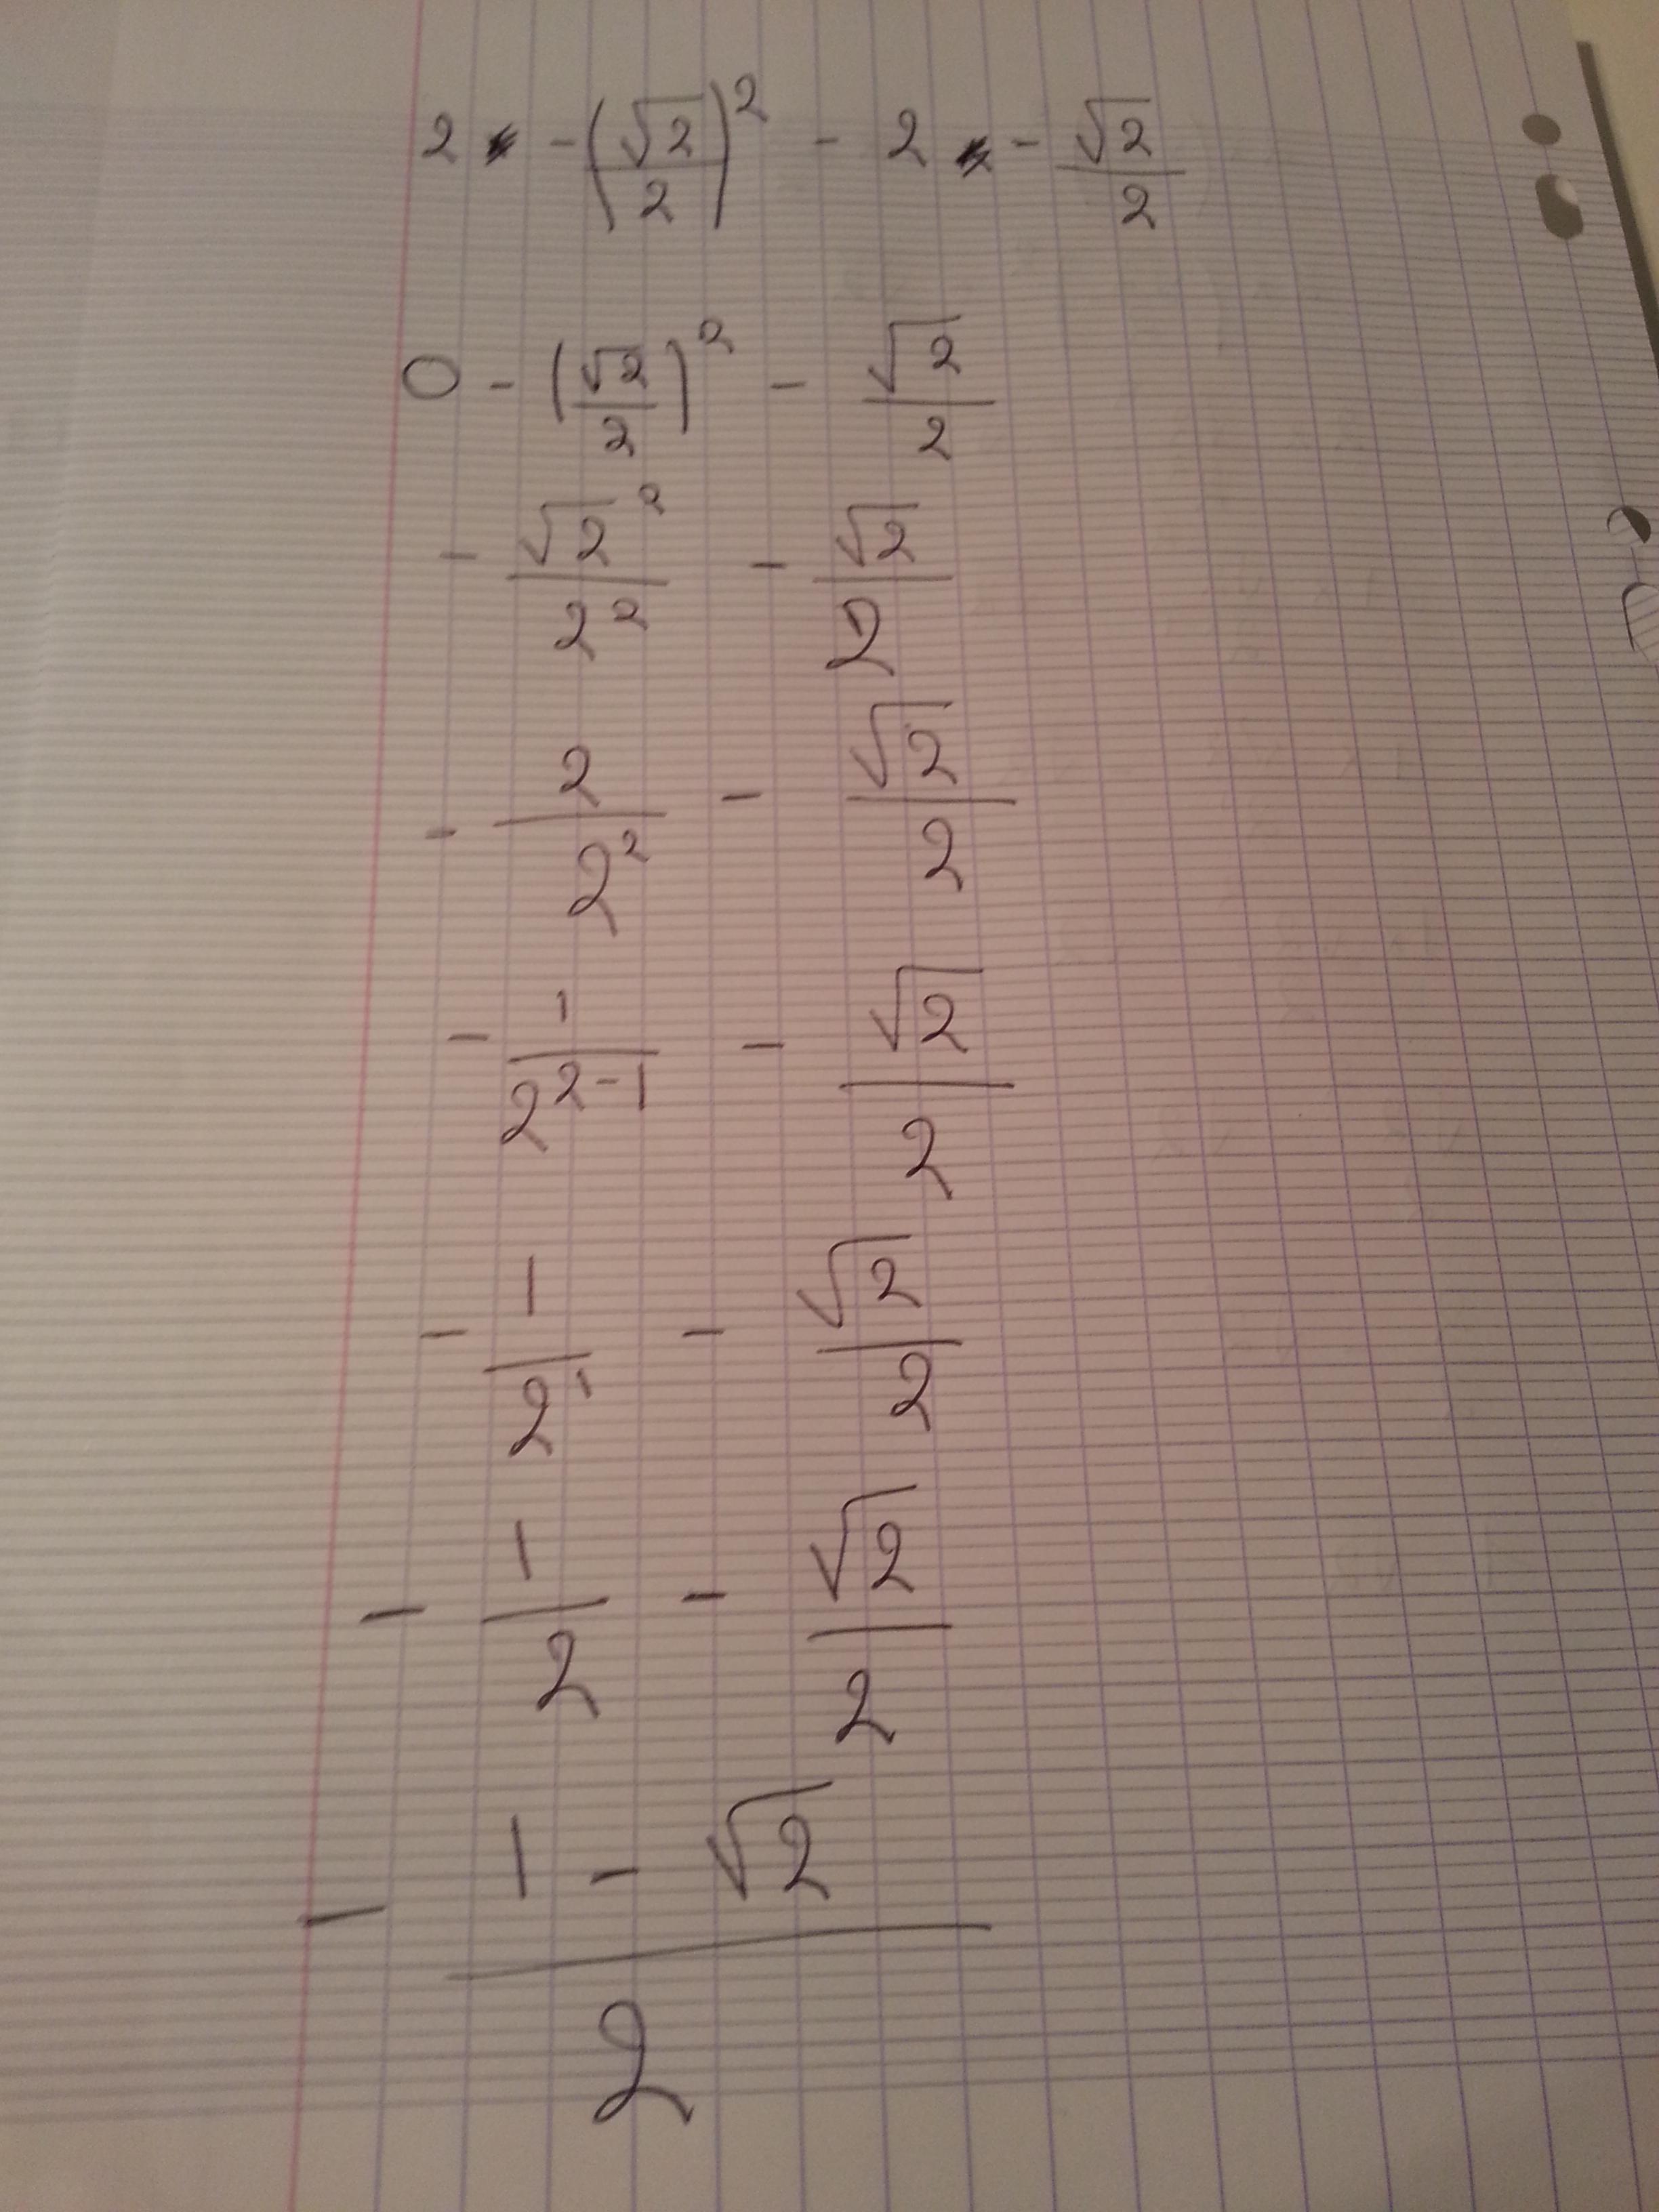 2 * -(√2/2)² - 2 * - √2/2
0 - (√2/2)² - √2/2
- √2²/2² - √2/2
- 2/2² - √2/2
- 1/2²⁻¹ - √2/2
- 1/2¹ - √2/2
- 1/2 - √2/2
- (1 - √2)/2